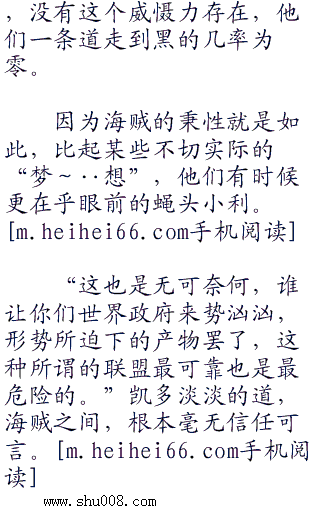 ，没有这个威慑力存在，他
们一条道走到黑的几率为
零。
因为海贼的秉性就是如
此，比起某些不切实际的
“梦～··想”，他们有时候
更在乎眼前的蝇头小利。
[m.heihei66.com手机阅读]
“这也是无可奈何，谁
让你们世界政府来势汹汹，
形势所迫下的产物罢了，这
种所谓的联盟最可靠也是最
危险的。”凯多淡淡的道，
海贼之间，根本毫无信任可
言。[m.heihei66.com手机阅
读]
www.shu008.com